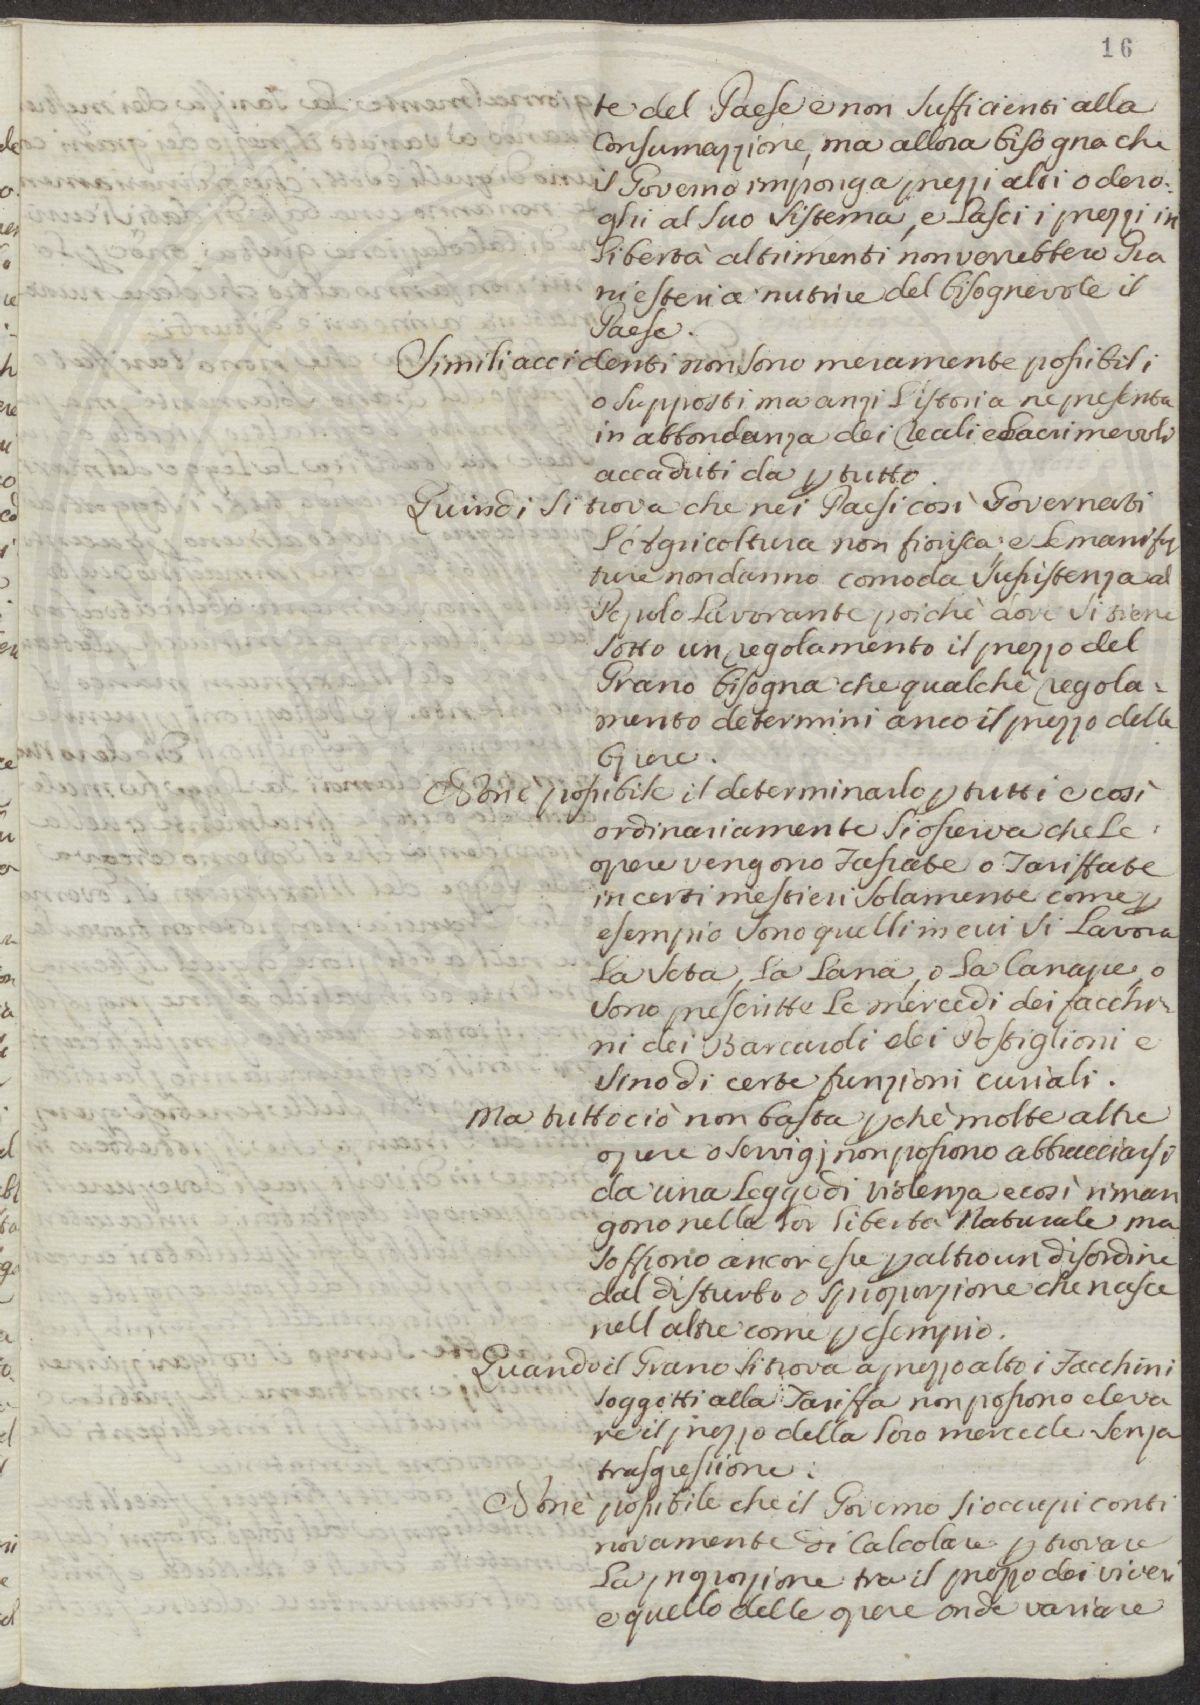 16
te del Paese e non sufficienti alla
Consumazzione, ma allora bisogna che
il Governo imponga prezzi alti o dero:
ghi al suo sistema, e lasci i prezzi in
libertà altrimenti non verrebbero Gra
ni esteri a nutrire del bisognevole il
Paese.
Simili accidenti non sono meramente possibili
o supposti ma anzi l'istoria ne presenta
in abbondanza dei reali e lacrimevoli
accaduti da p tutto.
Quindi si trova che nei Paesi così Governati
l'Agricoltura non fiorisca, e le manifat
ture non danno comoda sussistenza al
Popolo Lavorante poichè dove si tiene
sotto un regolamento il prezzo del
Grano bisogna che qualche regola=
mento determini anco il prezzo delle
Opere.
Non è possibile il determinarlo p tutti e così
ordinariamente si osserva che le
opere vengono Tassate o Tariffate
in certi mestieri solamente come p
esempio sono quelli in cui si Lavora
la Seta, la Lana, o la Canape, o
sono prescritte le mercedi dei facchi=
ni dei Barcaroli dei Postiglioni e
sino di certe funzioni curiali.
Ma tutto ciò non basta pchè molte altre
opere o servigj non possono abbracciarsi
da una Legge di violenza e così riman
gono nella lor libertà Naturale ma
soffrono ancor esse p altro un disordine
dal disturbo o sproporzione che nasce
nell altre come p esempio.
Quando il Grano si trova a prezzo alto i Facchini
soggetti alla Tariffa non possono eleva
re il prezzo della loro mercede senza
trasgressione:
Non è possibile che il Governo si occupi conti
novamente di Calcolare p trovare
la proporzione tra il prezzo dei viveri
e quello delle opere onde variare